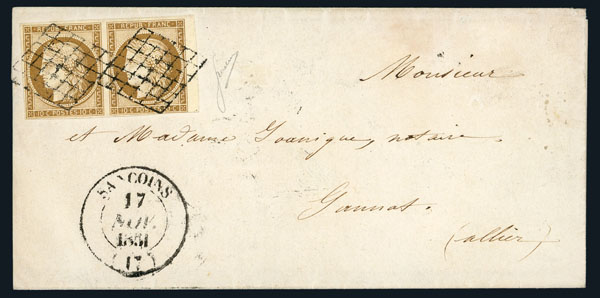 REPUB. FRANC. REPUB. FRANC.
10.C POSTES 10.C 10.C POSTES 10.C
Monsieur
et Madame Joanique, notaire
Gannat.
(allier)
SANCOINS
17
NOV.
1851
(17)